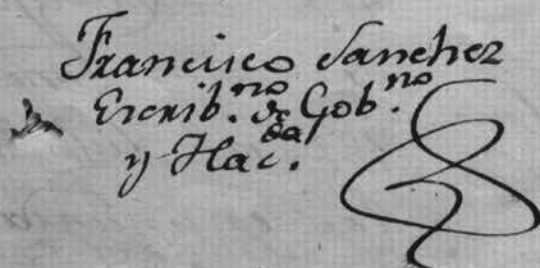 Francisco Sanchez
Escrib.no de Gob.no
y Hac.da